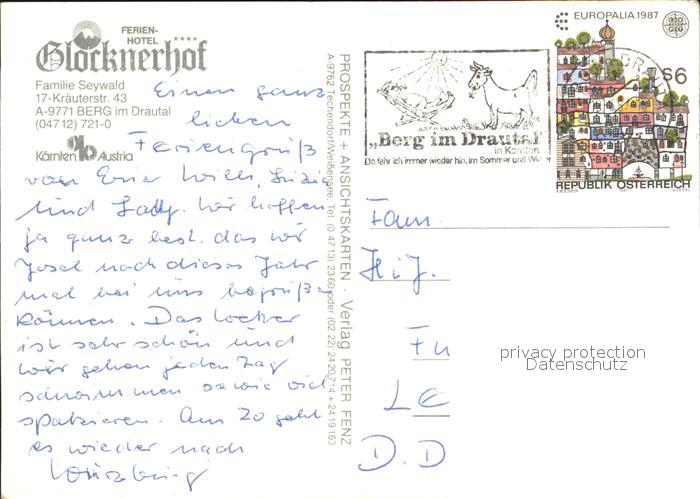 FERIEN-
HOTEL ****
Glocknerhof
Familie Seywald
17-Kräuterstr. 43
A-9771 BERG im Drautal
(04712) 721-0
Kärnten Austria
Einen ganz
lieben
Feriengruß
von Eurer Willi,
und Lady. Wir hoffen
ja ganz best. das wir
Josef noch dieses Jahr
mal bei uns begrüßen
können. Das Wetter
ist sehr schön und
wir gehen jeden Tag
schwimmen sowie viel
spatzieren. Am 20 geht
es wieder nach
Würzburg
PROSPEKTE + ANSICHTSKARTEN · Verlag PETER FENZ
A-9762 Techendorf/Weißensee, Tel. (0 47 13) 23 60 oder (02 22) 24 20 714 + 24 19 163
„Berg im Drautal"
in Kärnten
Da fahr ich immer wieder hin, im Sommer und Winter
EUROPALIA 1987
S6
REPUBLIK ÖSTERREICH
Fam.
H.J.
Fu
LE
D.D
privacy protection
Datenschutz